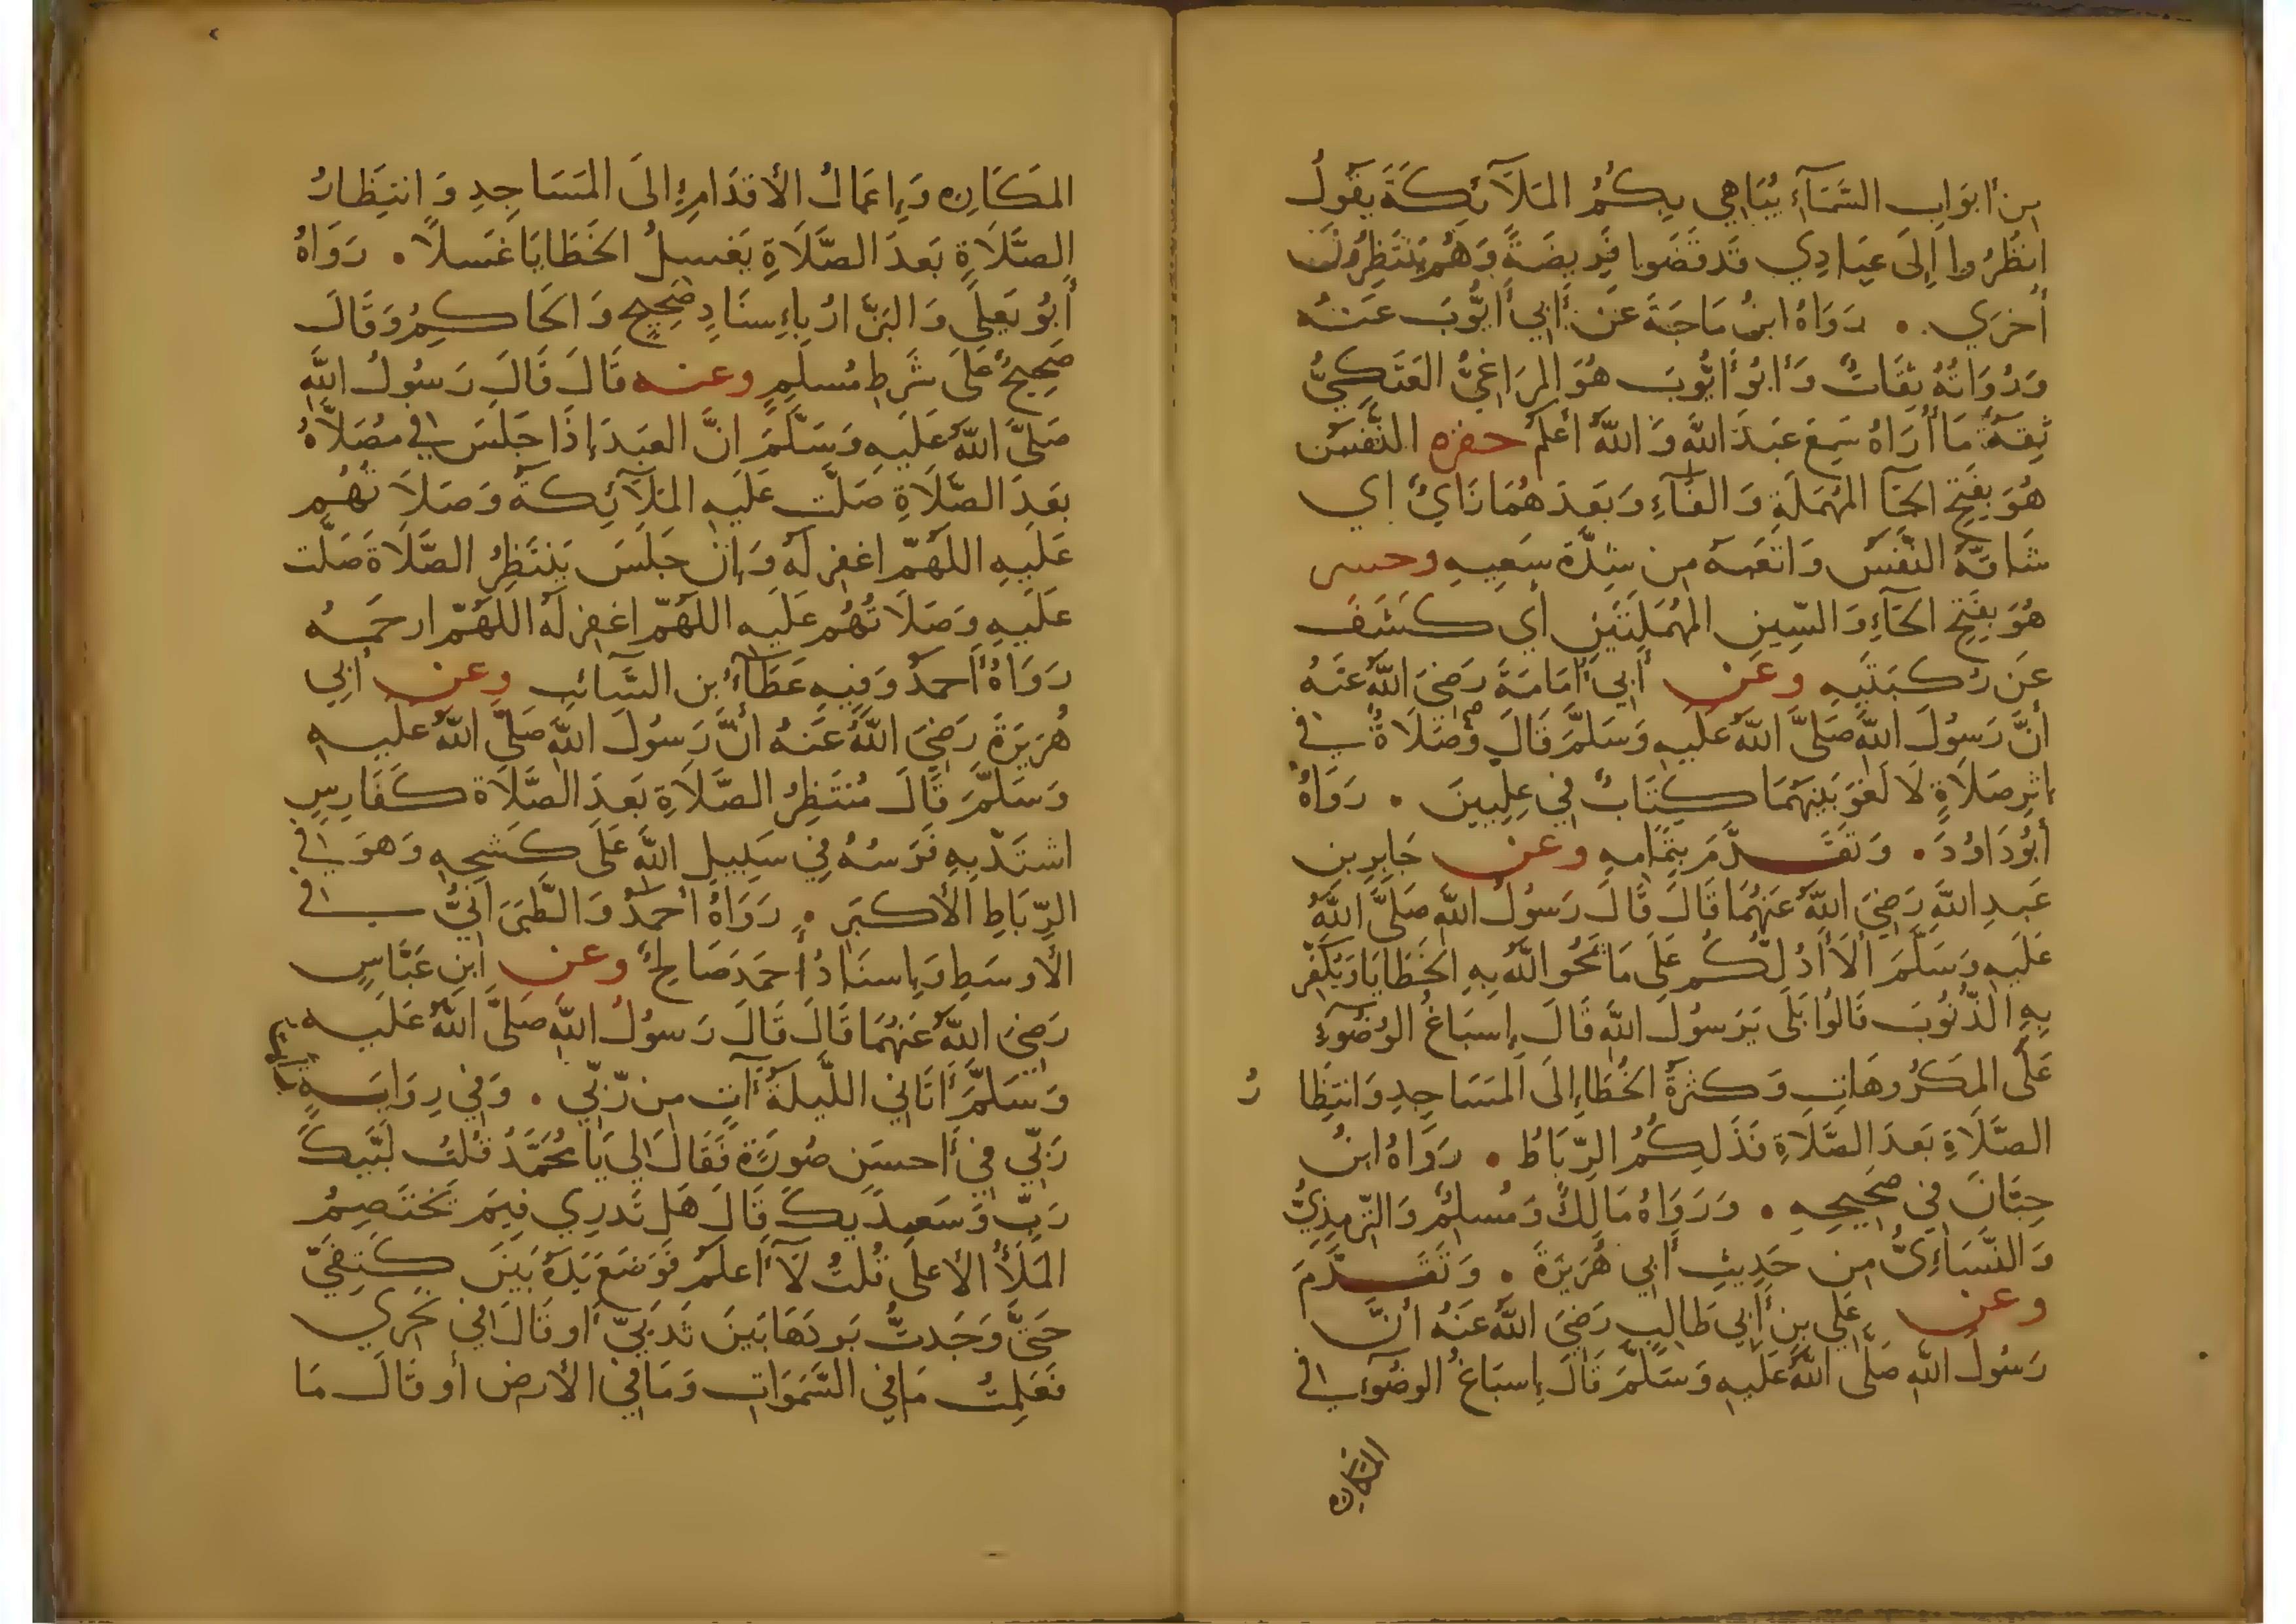 مِن أَبوَابِ السَّمَآءِ يُبَاهِي بِكُمُ المَلَآئِكَةَ يَقُولُ
انظُرُوا إِلَى عِبَادِي قَد قَضَوا فَرِيضَةً وَهُم يَنتَظِرُونَ
أُخرَى • رَوَاهُ ابنُ مَاجَةَ عَن أَبِي أَيُّوبَ عَنهُ
وَرُوَاتُهُ ثِقَاتٌ وَأَبُو أَيُّوبَ هُوَ المَرَاغِيُّ العَتَكِيُّ
ثِقَةٌ مَا أُرَاهُ سَمِعَ عَبدَ اللَّهِ وَاللَّهُ أَعلَمُ حفزه النَّفَسُ
هُوَ بِفَتحِ الحَآ المُهمَلَةِ وَالفَآءِ وَبَعدَهُمَا زَايٌ أي
شَاقَّهُ النَّفَسُ وَاتعَبَهُ مِن شِدَّةِ سَعيِهِ وحسر
هُوَ بِفَتحِ الحَآءِ وَالسِّينِ المُهمَلَتَينِ أي كَشَفَ
عَن رُكبَتَيهِ وعن أَبِي أُمَامَةَ رَضِيَ اللَّهُ عَنهُ
أَنَّ رَسُولَ اللَّهِ صَلَّى اللَّهُ عَلَيهِ وَسَلَّمَ قَالَ وَصَلَاةٌ فِي
إِثرِ صَلَاةٍ لَا لَغوَ بَينَهُمَا كِتَابٌ فِي عِلِّيِّينَ • رَوَاهُ
أَبُو دَاوُدَ • وَتَقَدَّمَ بِتَمَامِهِ وعن جَابِرِ بنِ
عَبدِ اللَّهِ رَضِيَ اللَّهُ عَنهُمَا قَالَ قَالَ رَسُولُ اللَّهِ صَلَّى اللَّهُ
عَلَيهِ وَسَلَّمَ أَلَا أَدُلُّكُم عَلَى مَا يَمحُو اللَّهُ بِهِ الخَطَايَا وَيُكَفِّرُ
بِهِ الذُّنُوبَ قَالُوا بَلَى يَرَسُولَ اللَّهِ قَالَ إِسبَاغُ الوُضُوءِ
عَلَى المَكرُوهَاتِ وَكَثرَةُ الخُطَا إِلَى المَسَاجِدِ وَانتِظَا رُ
الصَّلَاةِ بَعدَ الصَّلَاةِ فَذَلِكُمُ الرِّبَاطُ • رَوَاهُ ابنُ
حِبَّانَ فِي صَحِيحِهِ • وَرَوَاهُ مَالِكٌ وَمُسلِمٌ وَالتِّرمِذِيُّ
وَالنَّسَاءِيُّ مِن حَدِيثِ أَبِي هُرَيرَةَ • وَتَقَدَّمَ
وعن عَلِي بنِ أَبِي طَالِبٍ رَضِيَ اللَّهُ عَنهُ أَنَّ
رَسُولَ اللَّهِ صَلَّى اللَّهُ عَلَيهِ وَسَلَّمَ قَالَ إِسبَاغُ الوضُوءِ فِي
المكاره
المَكَارِهِ وَإِعمَالُ الأَقدَامِ إِلَى المَسَاجِدِ وَانتِظَارُ
الصَّلَاةِ بَعدَ الصَّلَاةِ يَغسِلُ الخَطَايَا غَسلًا • رَوَاهُ
أَبُو يَعلَى وَالبَزَّارُ بِإِسنَادٍ صَحِيحٍ وَالحَاكِمُ وَقَالَ
صَحِيحٌ عَلَى شَرطِ مُسلِمٍ وعنه قَالَ قَالَ رَسُولُ اللَّهِ
صَلَّى اللَّهُ عَلَيهِ وَسَلَّمَ انَّ العَبدَ إِذَا جَلَسَ فِي مُصَلَّاهُ
بَعدَ الصَّلَاةِ صَلَّت عَلَيهِ المَلَآئِكَةُ وَصَلَاتُهُم
عَلَيهِ اللَّهُمَّ اغفِر لَهُ وَإِن جَلَسَ يَنتَظِرُ الصَّلَاةَ صَلَّت
عَلَيهِ وَصَلَاتُهُم عَلَيهِ اللَّهُمَّ اغفِر لَهُ اللَّهُمَّ ارحَمهُ
رَوَاهُ أَحمَدُ وَفِيهِ عَطَآءُ بنِ السَّائبِ وعن أَبِي
هُرَيرَةَ رَضِيَ اللَّهُ عَنهُ انَّ رَسُولَ اللَّهِ صَلَّى اللَّهُ عَلَيهِ
وَسَلَّمَ قَالَ مُنتَظِرُ الصَّلَاةِ بَعدَ الصَّلَاة كَفَارِسٍ
اشتَدَّ بِهِ فَرَسُهُ فِي سَبِيلِ اللَّهِ عَلَى كَشحِهِ وَهوَ فِي
الرِّبَاطِ الأَكبَرِ • رَوَاهُ أَحمَدُ وَالطَّبَرَانِيُّ فِي
الأَوسَطِ وَإِسنَادُ أَحمَدَ صَالِحٌ وعن ابنِ عَبَّاسٍ
رَضِيَ اللَّهُ عَنهُمَا قَالَ قَالَ رَسُولُ اللَّهِ صَلَّى اللَّهُ عَلَيهِ
وَسَلَّمَ أَتَانِي اللَّيلَةَ آتٍ مِن رَّبِّي • وَفِي رِوَايَةٍ
رَبِّي فِي أَحسَنِ صُورَةٍ فَقَالَ لِي يَا مُحَمَّدُ قُلتُ لَبَّيكَ
رَبِّ وَسَعدَيكَ قَالَ هَل تَدرِي فِيمَ يَختَصِمُ
المَلَأُ الأَعلَى قُلتُ لَا أَعلَمُ فَوَضَعَ يَدَهُ بَينَ كَتِفَيَّ
حَتَّى وَجَدتُّ بَردَهَا بَينَ ثَديَيَّ أَو قَالَ فِي نَحرِي
فَعَلِمتُ مَا فِي السَّمَوَاتِ وَمَا فِي الأَرضِ أَو قَالَ مَا